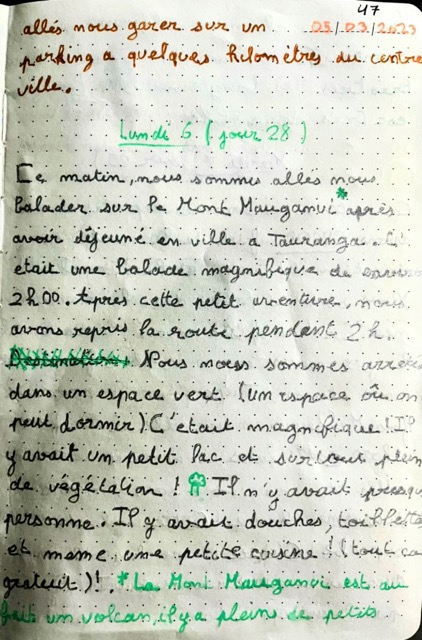 47
allés nous garer sur un 05/03/2023
parking a quelques kilomètres du centre
ville.
Lundi 6 (jour 28)
Ce matin, nous sommes allés nous
balader sur le Mont Mauganui* après
avoir déjeuné en ville a Tauranga. C'
etait une balade magnifique de environ
2h00. Apres cette petit aventure, nous
avons repris la route pendant 2h.
Nous nous sommes arrétés
dans un espace vert (un espace où on
peut dormir) C'etait magnifique ! Il
y avait un petit lac et surtout plein
de végétation ! Il n'y avait presque
personne. Il y avait douches, toillettes
et meme une petite cuisine ! (tout ca
gratuit)! *Le Mont Mauganui est au
fait un volcan, il y a plein de petits